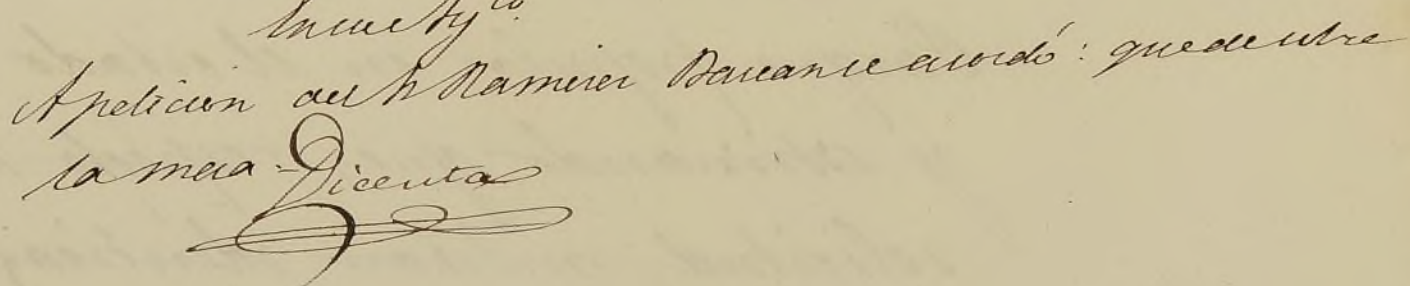 Apeticion del Sr Ramirez Bascan se acordó: quede sobre
la mesa - Dicenta